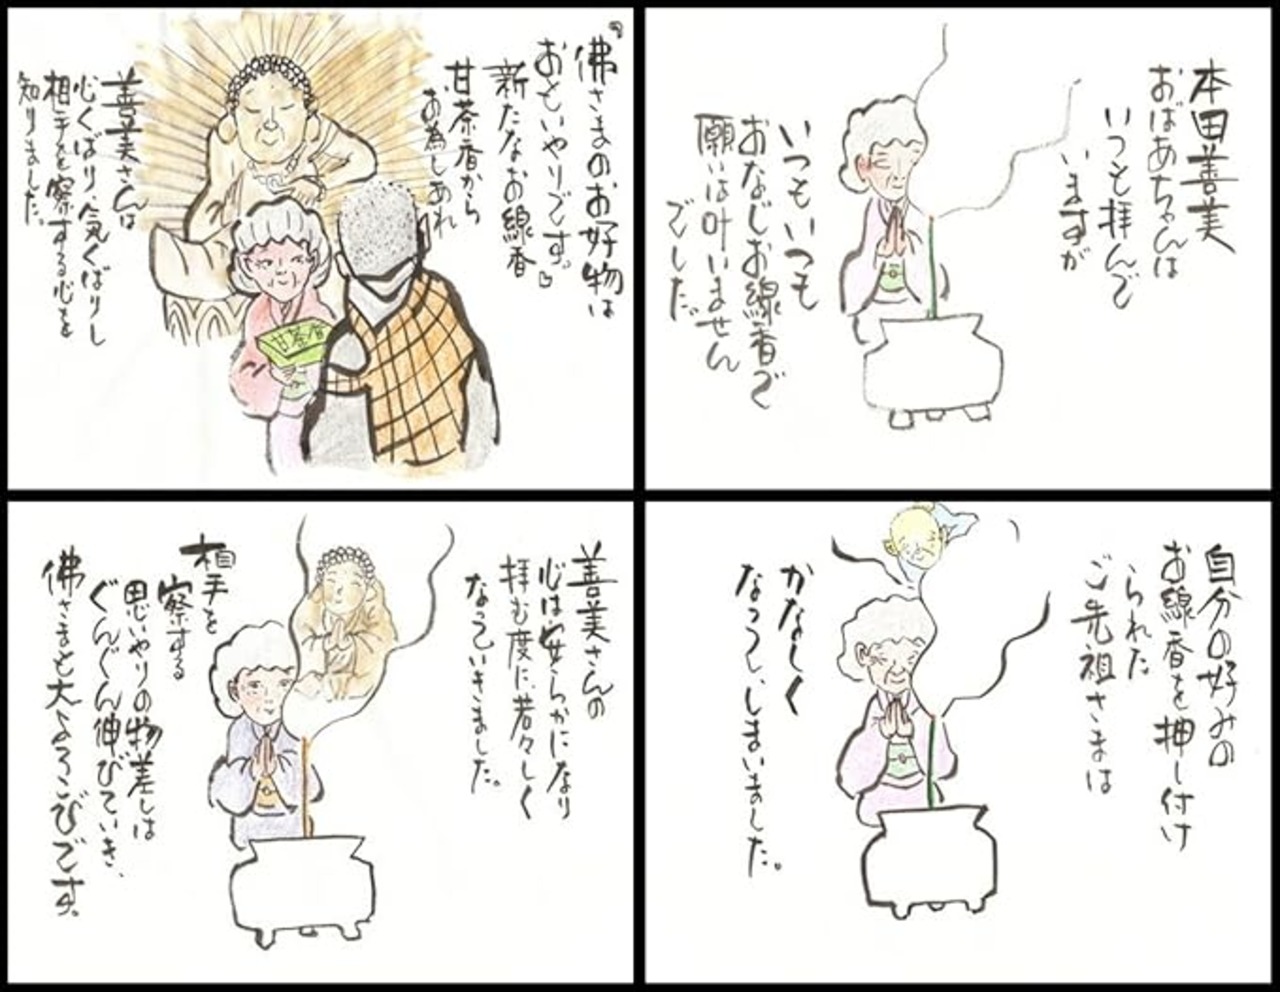 本田善美
おばあちゃんは
いつも拝んで
いますが
いつもいつも
おなじお線香で
願いは叶いません
でした。
自分の好みの
お線香を押し付け
られた
ご先祖さまは
かなしく
なってしまいました。
『佛さまのお好物は
おもいやりです。』
新たなお線香
甘茶香から
お為しあれ
甘茶香
善美さんは
心くばり、気くばりし
相手を察する心を
知りました。
善美さんの
心は安らかになり
拝む度に、若々しく
なっていきました。
相手を
察する
思いやりの物差しは
ぐんぐん伸びていき、
佛さまも大よろこびです。